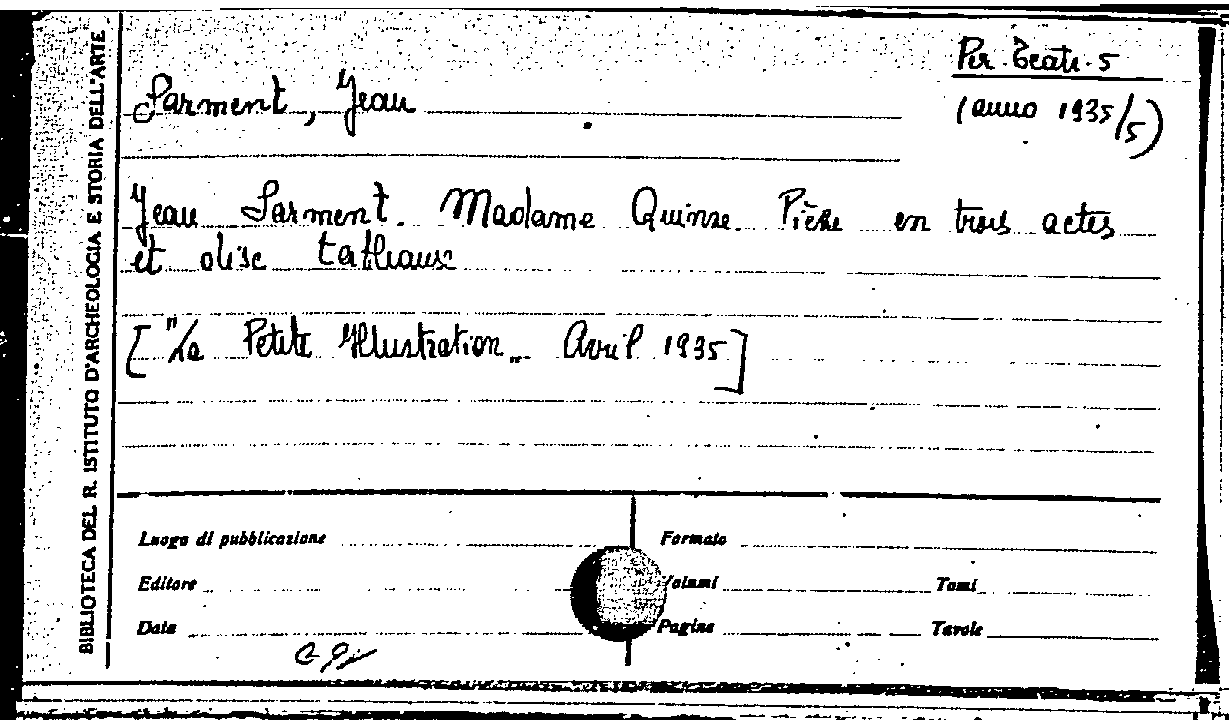 BIBLIOTECA DEL R. ISTITUTO D'ARCHEOLOGIA E STORIA DELL'ARTE
Per. Teatr. 5
(anno 1935/5)
Sarment, Jean
Jean Sarment. Madame Quinze. Pièce en trois actes
et dise tableaux
["La Petite Illustration„ Avril 1935]
Luogo di pubblicazione
Formato
Editore
Volumi
Tomi
Data
Pagine
Tavole